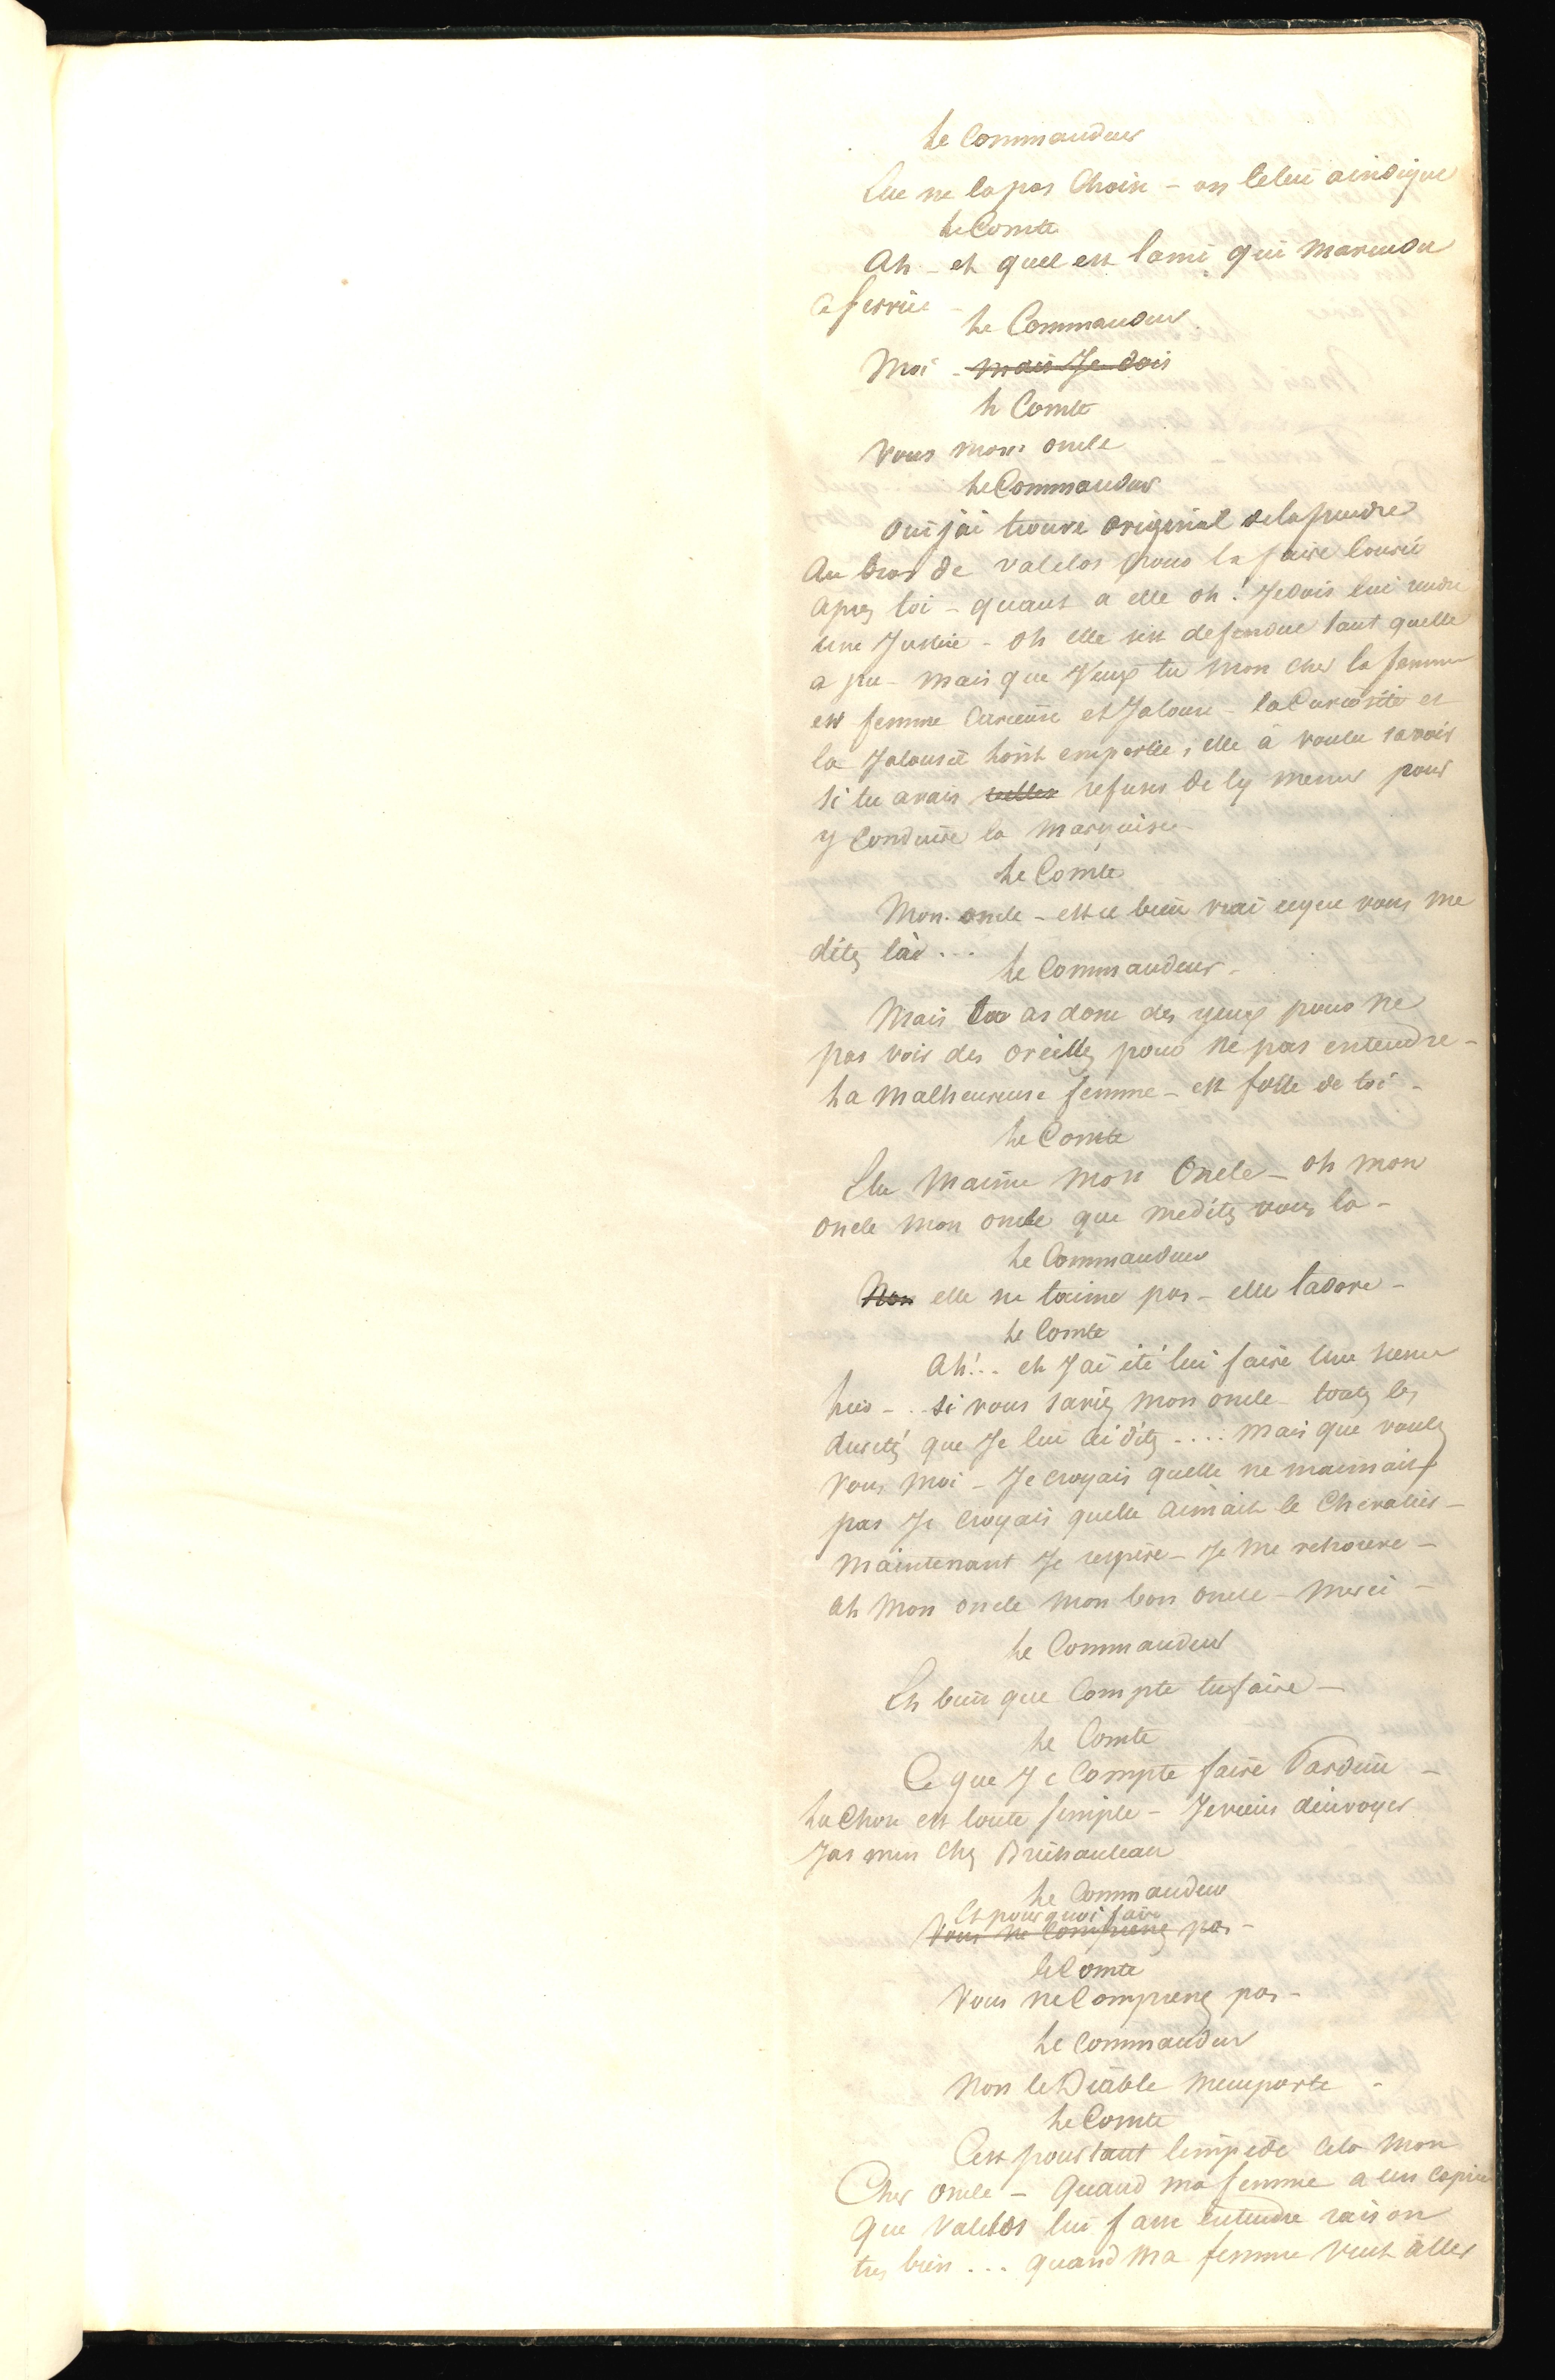 Le Commandeur
Elle ne la pas Choisi – on le lui a indiqué
Le Comte
Ah – et quel est lami qui ma rendu
Ce service –
Le Commandeur
Moi – mais Je dois
Le Comte
Vous mon oncle
Le Commandeur
Oui jai trouvé original de la prendre
Au bras de Valclos pour la faire courir
Apres toi – quant a elle oh! Je dois lui rendre
une Justice – oh elle sest defendue tant quelle
a pu – mais que Veux tu mon cher la femme
est femme Curieuse et Jalouse – la Curiosité et
la Jalousie lont emportée, elle à voulu savoir
Si tu avais refuser de ly mener pour
y Conduire la Marquise –
Le Comte
Mon oncle – est ce bien vrai ceque vous me
dites là ...
Le Commandeur –
Mais tu as donc des yeux pour ne
pas voir des oreilles pour ne pas entendre –
La Malheureuse femme – est folle de toi –
Le Comte
Elle Maime mon Oncle – oh mon
oncle mon oncle que medites vous la –
Le Commandeur
Non elle ne taime pas – elle tadore –
Le Comte
Ah!.. et J'ai été lui faire Une scene
hier – .. si vous saviez mon oncle toutes les
duretés que Je lui ai dites .... Mais que voulez
Vous moi – Je croyais quelle ne maimait
pas Je croyais quelle aimait le Chevalier –
Maintenant Je respire – Je me retrouve –
Ah Mon oncle Mon bon oncle – Merci –
Le Commandeur
Eh bien que Compte tu faire –
Le Comte
Ce que Je Compte faire Pardieu –
La Chose est toute simple – Je viens d'envoyer
Jasmin chez
Le Commandeur
Et pourquoi faire
Vous ne Comprenez pas –
Le Comte
Vous ne Comprenez pas –
Le Commandeur
Non le Diable memporte –
Le Comte
Cest pourtant limpide Cela Mon
Cher oncle – Quand ma femme a un Caprice
Que Valclos lui fasse entendre raison
tres bien ... quand Ma femme veut aller